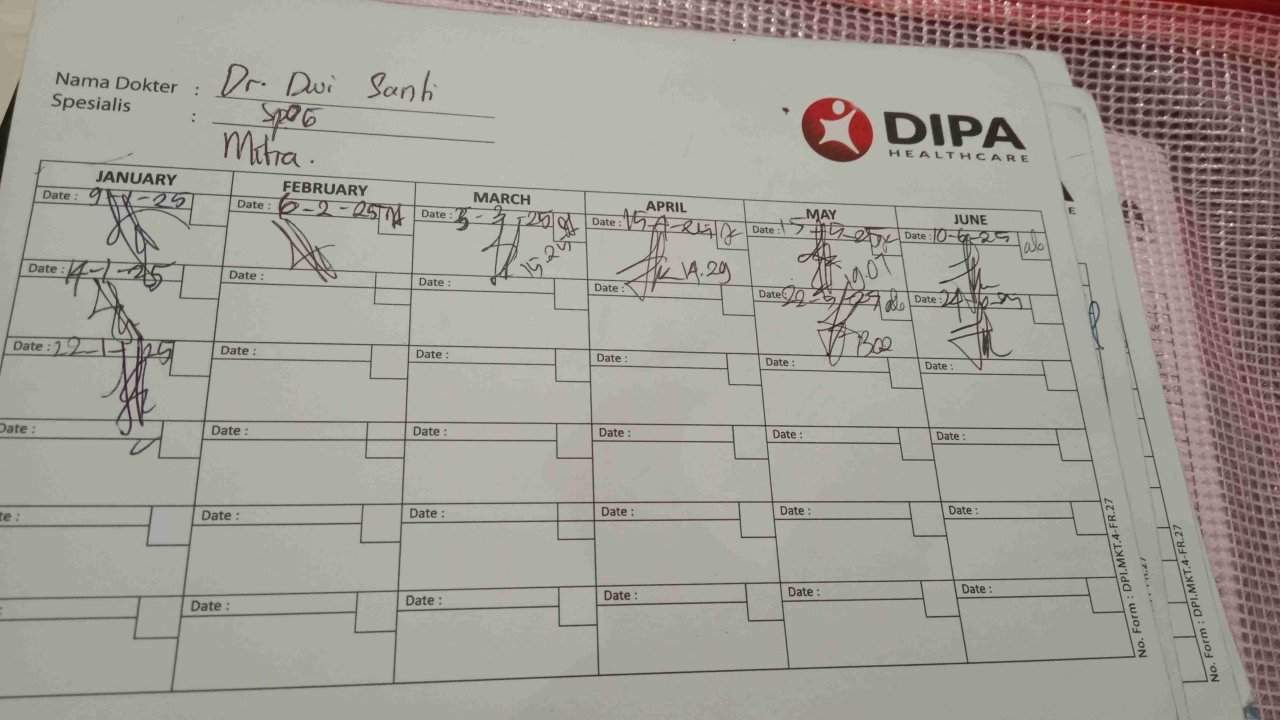 Nama Dokter : Dr. Dwi Santi
Spesialis : SpOG
Mitra.
DIPA
HEALTHCARE
JANUARY FEBRUARY MARCH APRIL MAY JUNE
Date : 9-1-25 Date : 6-2-25 Date : 3-3-25 Date : 15-4-25 Date : 15-5-25 Date : 10-6-25
15.25 14.29 19.07
Date : 14-1-25 Date : Date : Date : Date : 22-5-25 Date : 24-6-25
1302
Date : 22-1-25 Date : Date : Date : Date : Date :
Date : Date : Date : Date : Date : Date :
te : Date : Date : Date : Date : Date :
: Date : Date : Date : Date : Date :
No. Form : DPI.MKT.4-FR.27
No. Form : DPI.MKT.4-FR.27